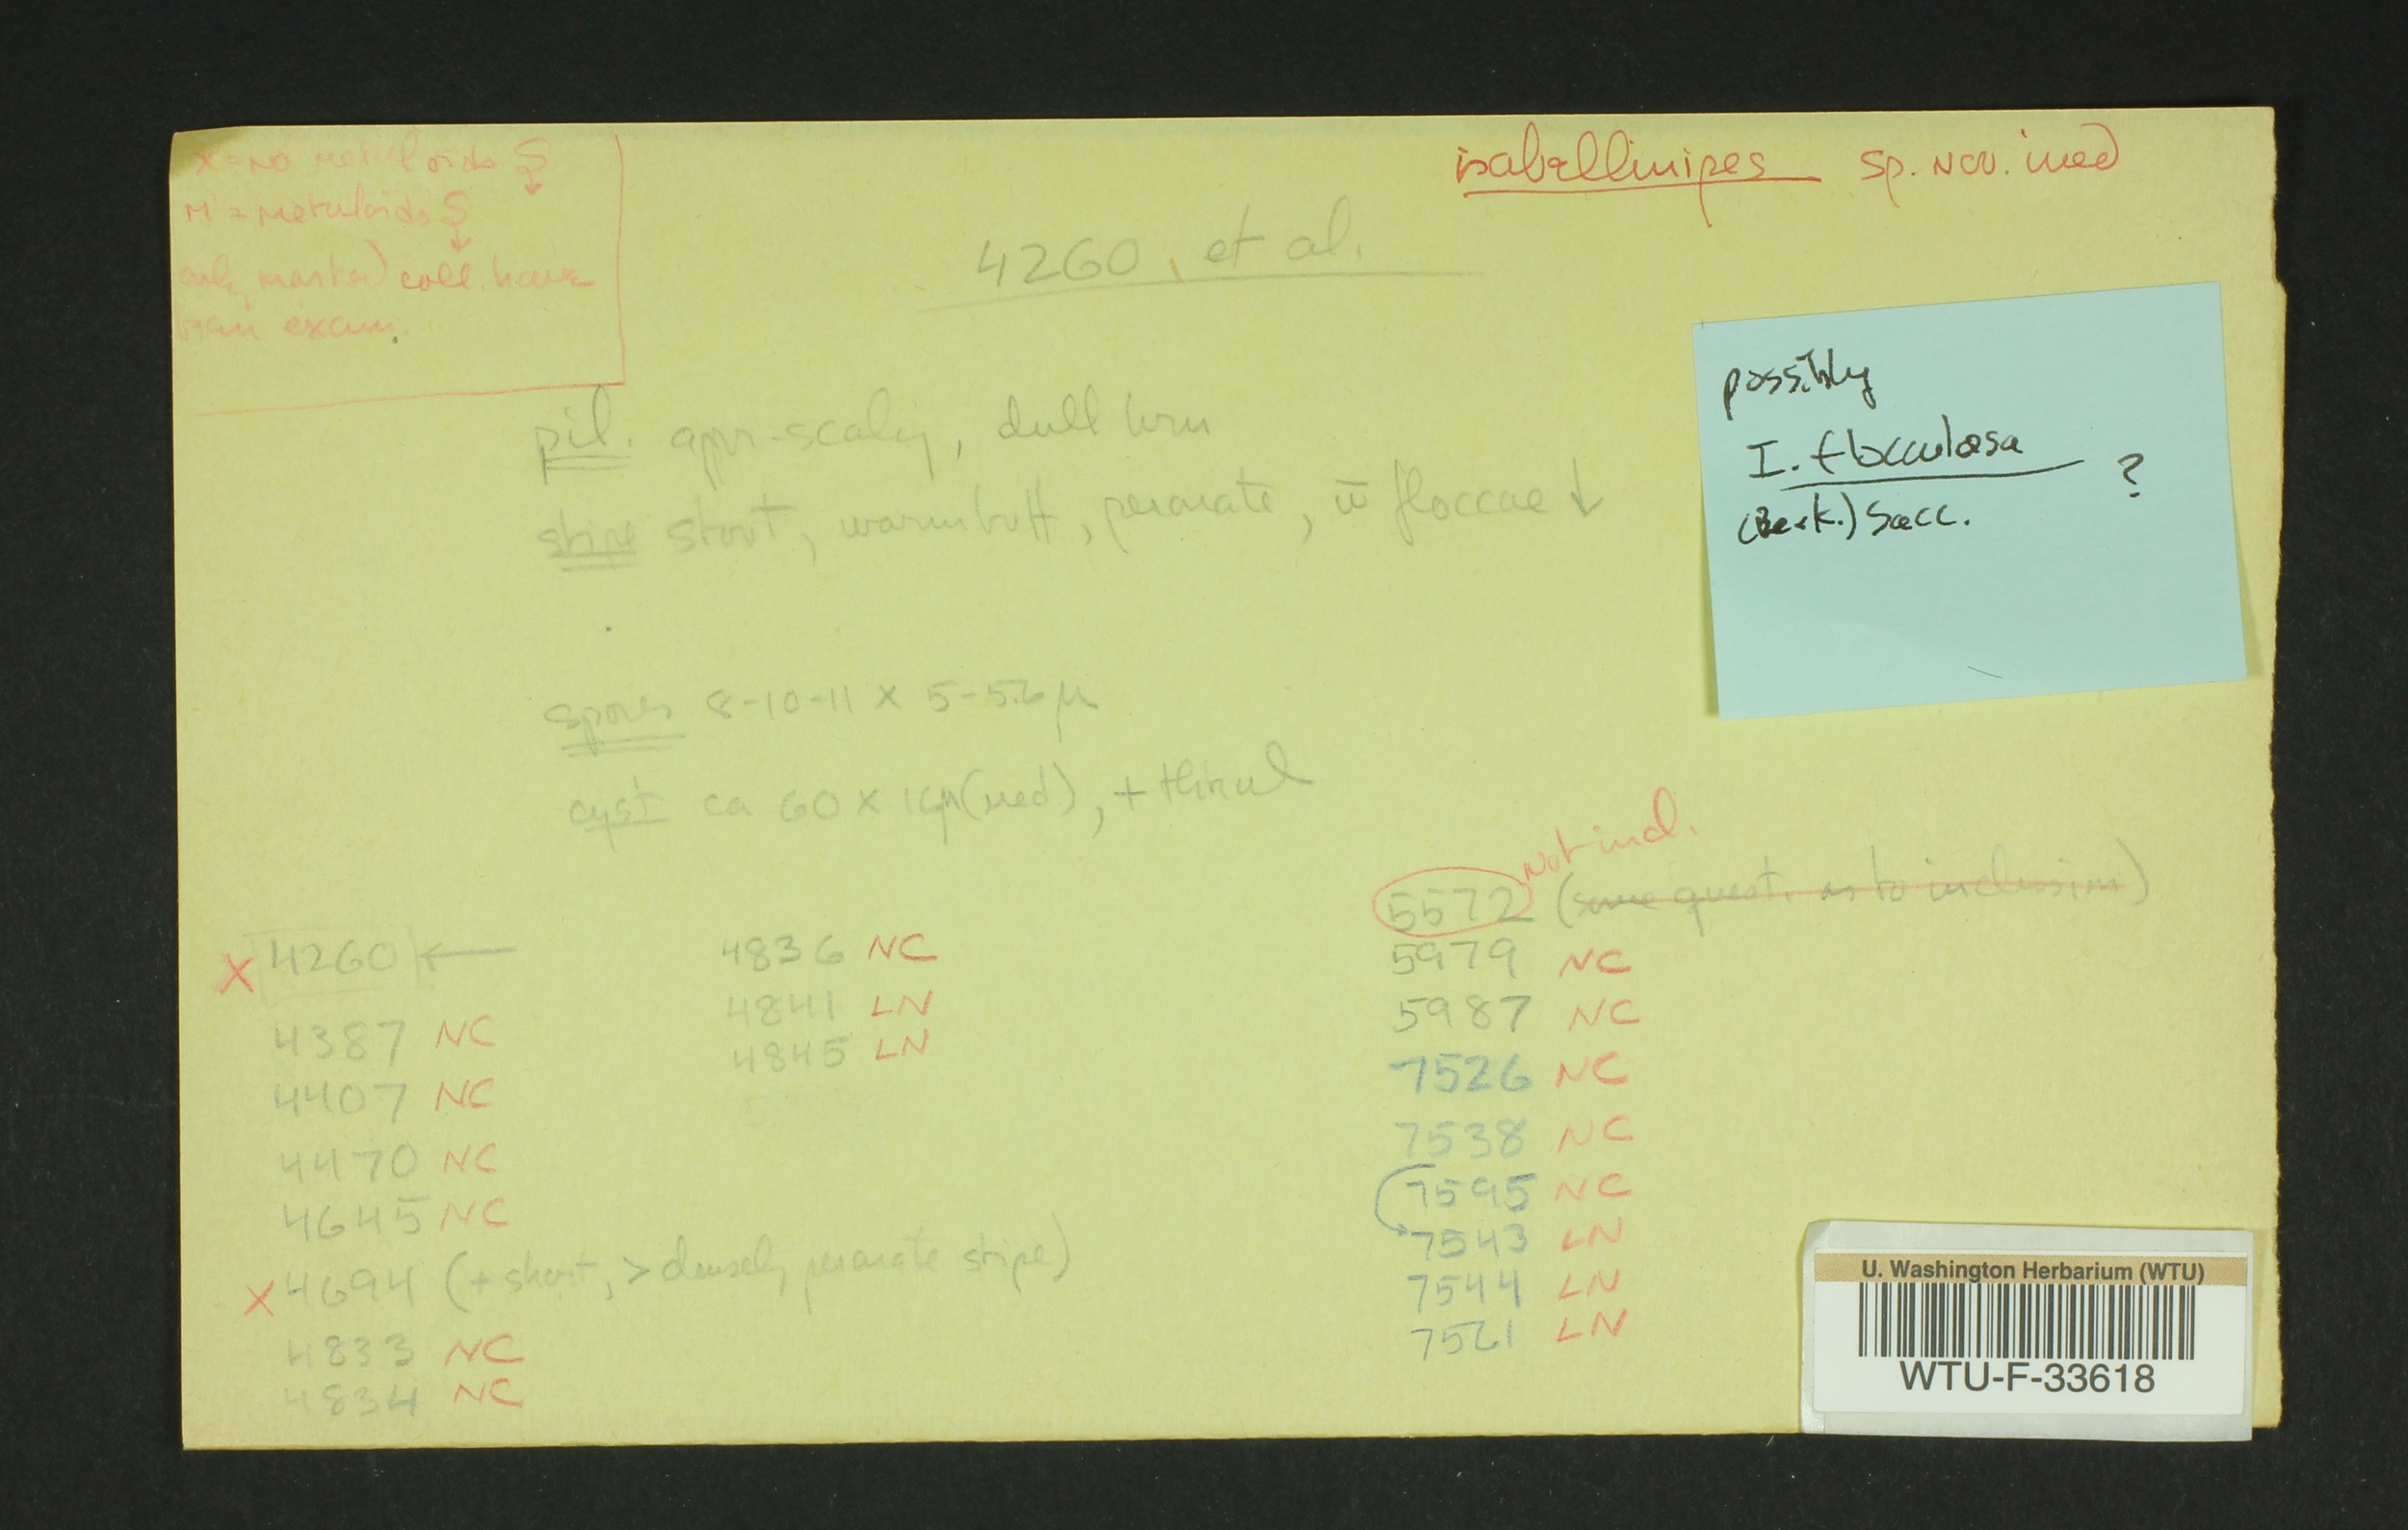 X = no metuloids S ↓
M = metuloids S ↓
only marked coll. have
been exam.
isabellinipes sp. nov. ined
4260, et al.
possibly
I. flocculosa ?
(Berk.) Sacc.
pil. appr-scaly, dull brn
stipe stout, warm buff, peronate, w̄ floccae ↓
spores 8-10-11 x 5-5.6 µ
cyst ca 60 x 16µ (med.), +
X 4260 ←
4387 NC
4407 NC
4470 NC
4645 NC
X 4694 (+ short, > densely peronate stipe)
4833 NC
4834 NC
4836 NC
4841 LN
4845 LN
5572 not incl. (some quest. as to inclusion)
5979 NC
5987 NC
7526 NC
7538 NC
7595 NC
7543 LN
7544 LN
7521 LN
U. Washington Herbarium (WTU)
WTU-F-33618